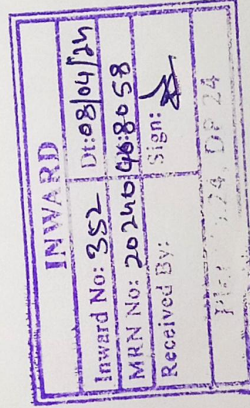 INWARD
Inward No: 352 Dt: 08/04/24
MRN No: 20240468058
Received By: Sign:
24 DP 24